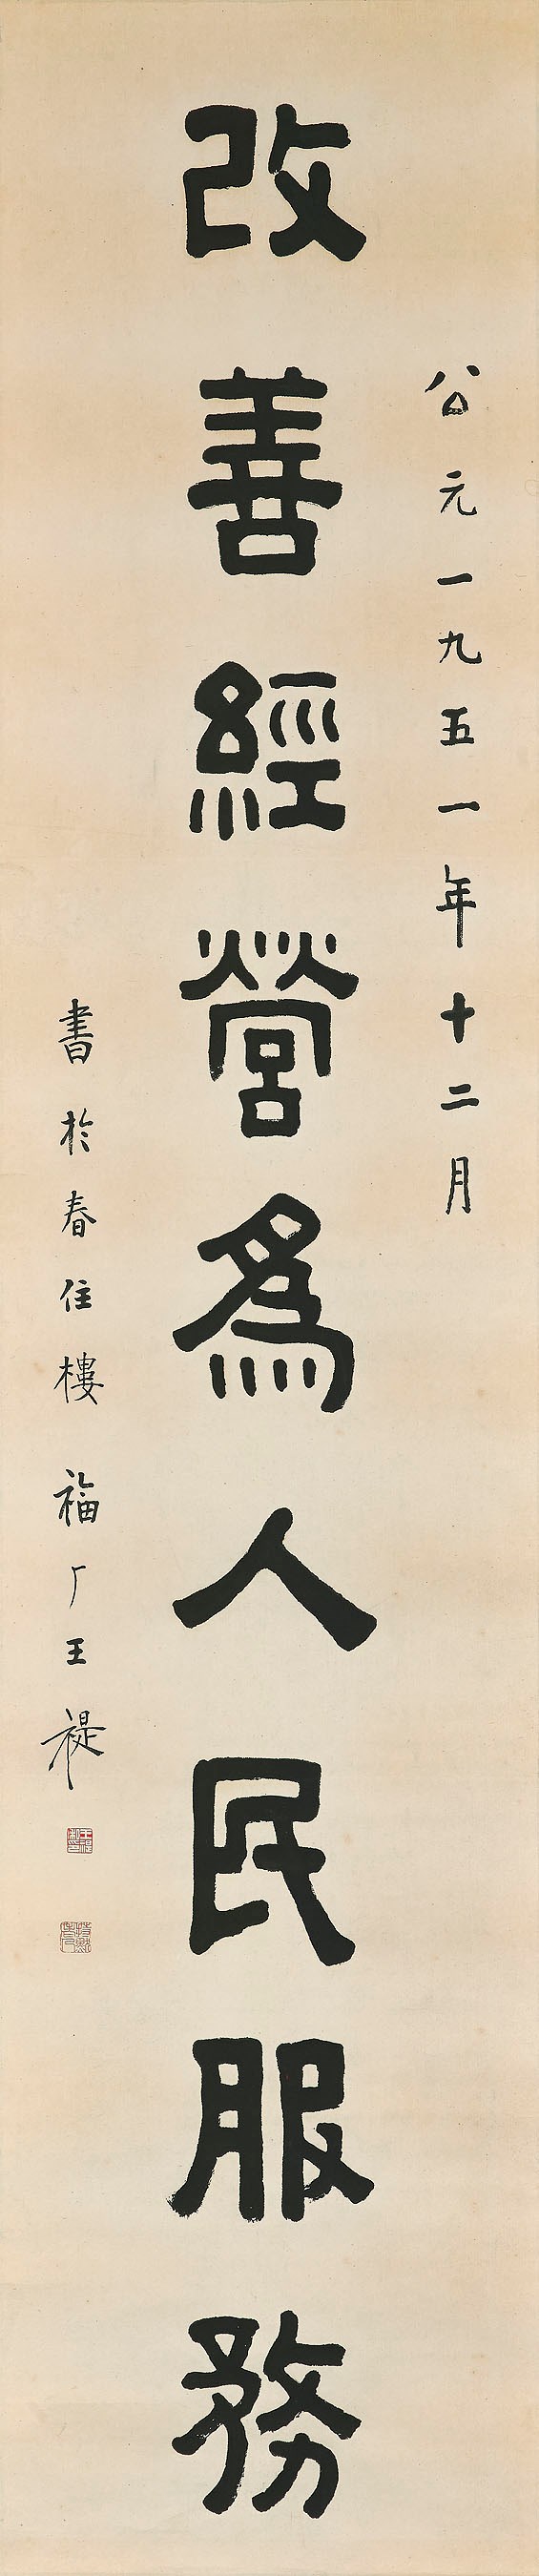 公元一九五一年十二月
改善經營為人民服務
書於春住樓福厂王禔